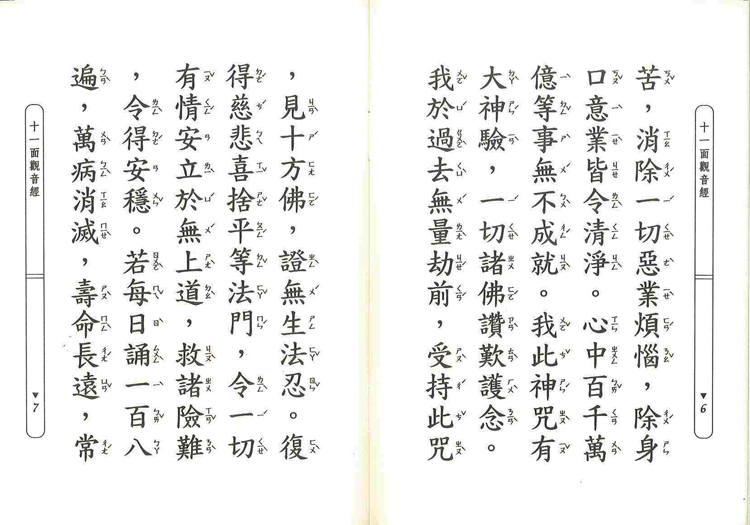 十一面觀音經
▼6
苦，消除一切惡業煩惱，除身
口意業皆令清淨。心中百千萬
億等事無不成就。我此神咒有
大神驗，一切諸佛讚歎護念。
我於過去無量劫前，受持此咒
，見十方佛，證無生法忍。復
得慈悲喜捨平等法門，令一切
有情安立於無上道，救諸險難
，令得安穩。若每日誦一百八
遍，萬病消滅，壽命長遠，常
十一面觀音經
▼7